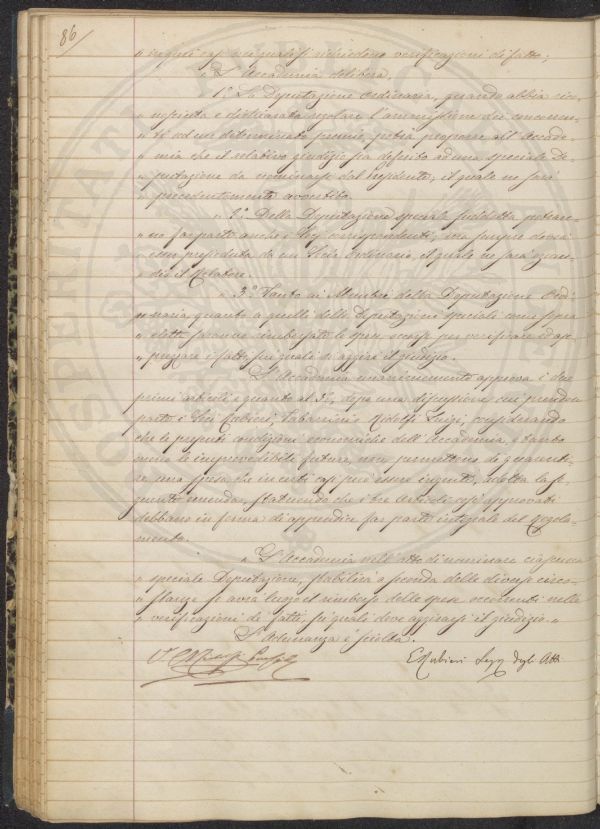 86
" seguire casi eccezionali si richiedono verificazioni di fatto;
" L'Accademia delibera.
" 1.° La Deputazione ordinaria, quando abbia rico-
" nosciuta e dichiarata regolare l'ammissione dei concorren-
" ti ad un determinato premio, potrà proporre all'Accade-
" mia che il relativo giudizio sia deferito ad una speciale De-
" putazione da nominarsi dal Presidente, il quale ne sarà
" precedentemente avvertito.
" 2.° Della Deputazione speciale suddetta potran-
" no far parte anche i Soci corrispondenti, ma sempre dovrà
" esser presieduta da un Socio ordinario, il quale ne sarà ezian-
" dio il Relatore.
" 3.° Tanto ai Membri della Deputazione Ordi-
" naria quanto a quelli delle Deputazioni speciali come sopra
" elette saranno rimborsate le spese occorse per verificare ed ap-
" prezzare i fatti sui quali si aggira il giudizio.
L'Accademia unanimemente approva i due
primi articoli e quanto al 3.°, dopo una discussione cui prendon
parte i Soci Rubieri, e Ridolfi Luigi, considerando
che le presenti condizioni economiche dell'Accademia, e tanto
meno le imprevedibili future, non permettono di guarenti-
re una spesa che in certi casi può essere ingente, adotta la se-
guente emenda, statuendo che i tre Articoli così approvati
debbano in forma di appendice far parte integrale del Regola-
mento.
" L'Accademia nell'atto di nominare ciascuna
" speciale Deputazione, stabilirà a seconda delle diverse circo-
" stanze se avrà luogo il rimborso delle spese occorrenti nella
" verificazione di fatti, su' quali deve aggirarsi il giudizio. "
L'Adunanza è sciolta.
E Rubieri Seg.º degli Atti